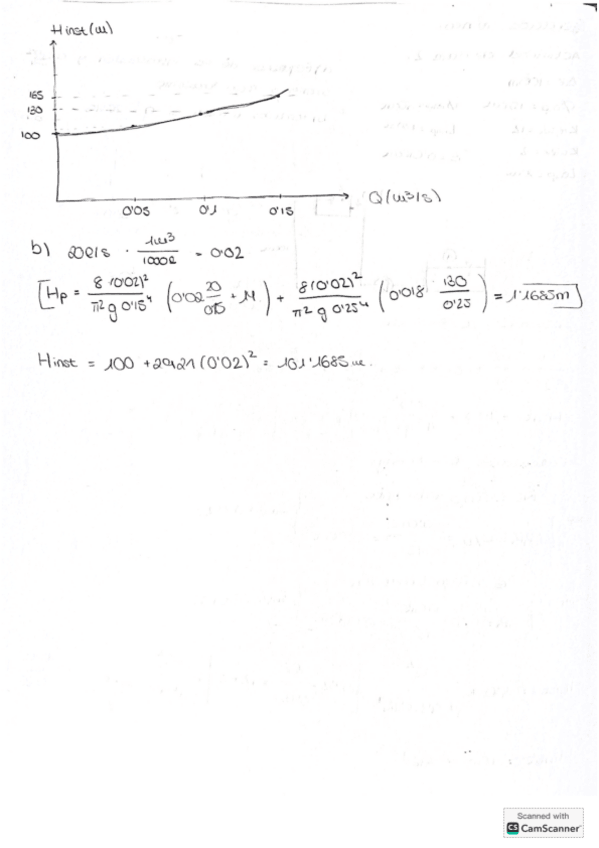 Hinst (m)
165
130
100
0'05 0'1 0'15 Q (m³/s)
b) 20l/s · 1m³/1000l = 0'02
[Hp = 8 (0'02)²/π² g 0'15⁴ (0'02 20/0'15 + M) + 8 (0'02)²/π² g 0'25⁴ (0'018 · 130/0'25) = 1'1685m]
Hinst = 100 + 2921 (0'02)² = 101'1685m.
Scanned with
CS CamScanner